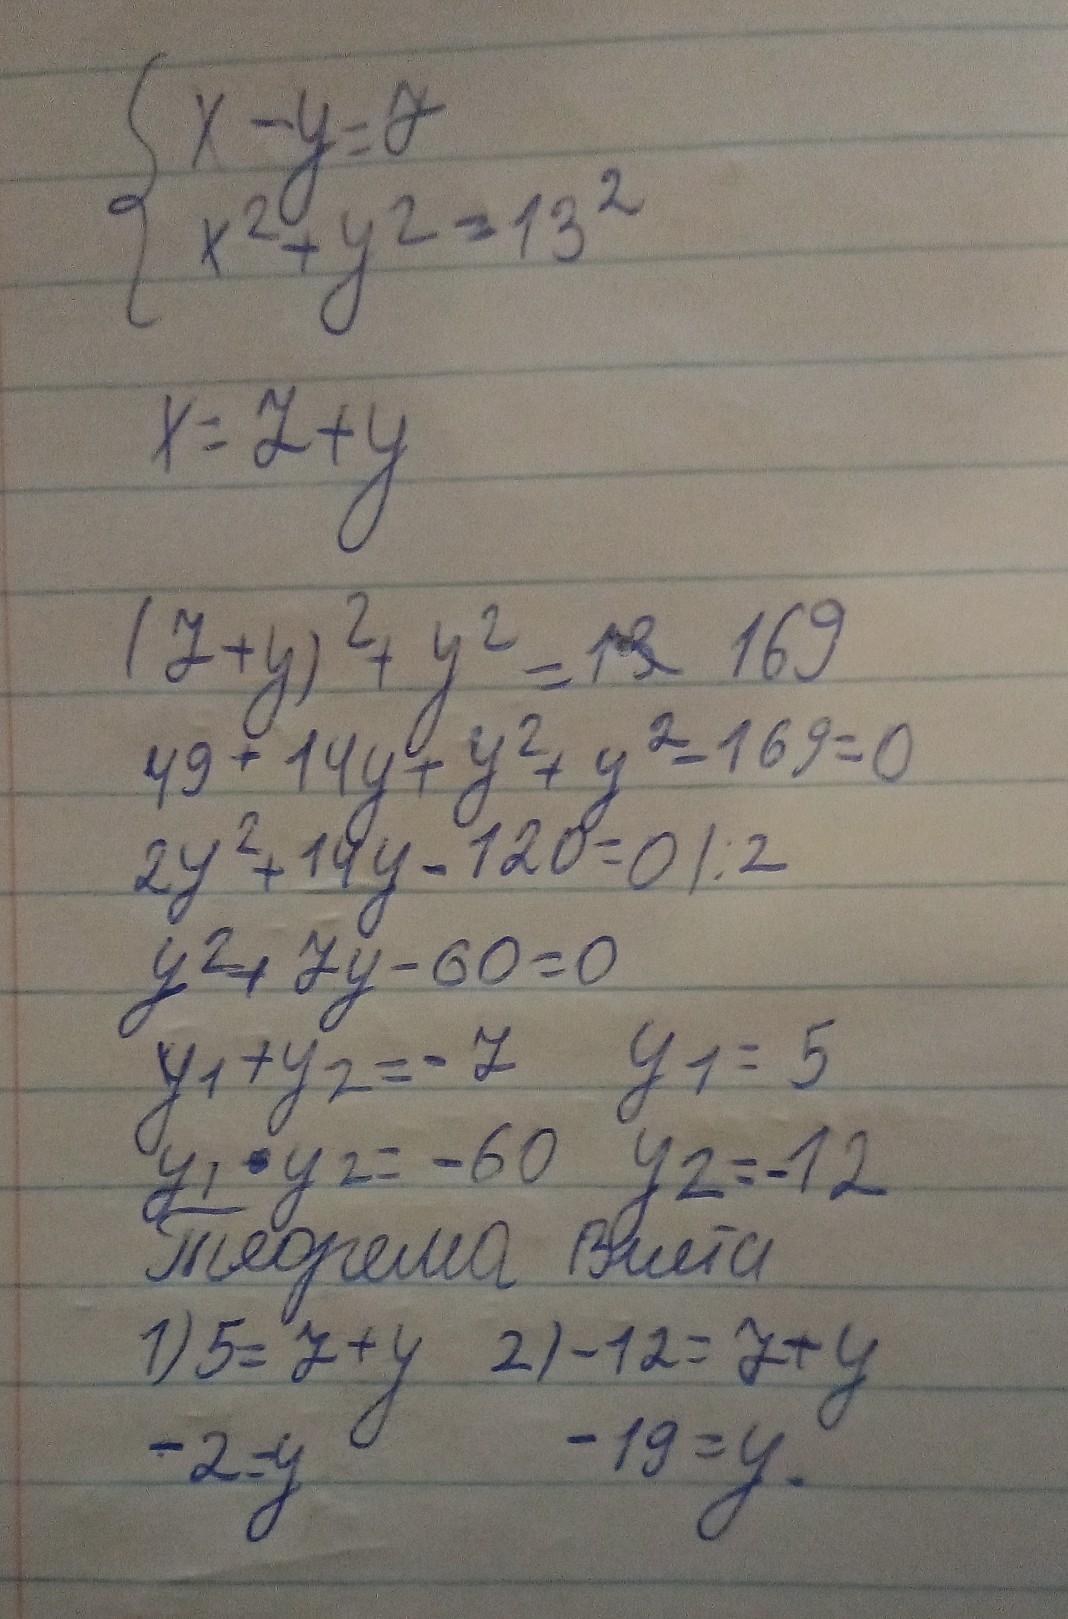 x - y = 7
x² + y² = 13²
x = 7 + y
(7 + y)² + y² = 169
49 + 14y + y² + y² - 169 = 0
2y² + 14y - 120 = 0 | : 2
y² + 7y - 60 = 0
y₁ + y₂ = - 7 y₁ = 5
y₁ • y₂ = - 60 y₂ = - 12
теорема Виета
1) 5 = 7 + y 2) - 12 = 7 + y
- 2 = y - 19 = y.